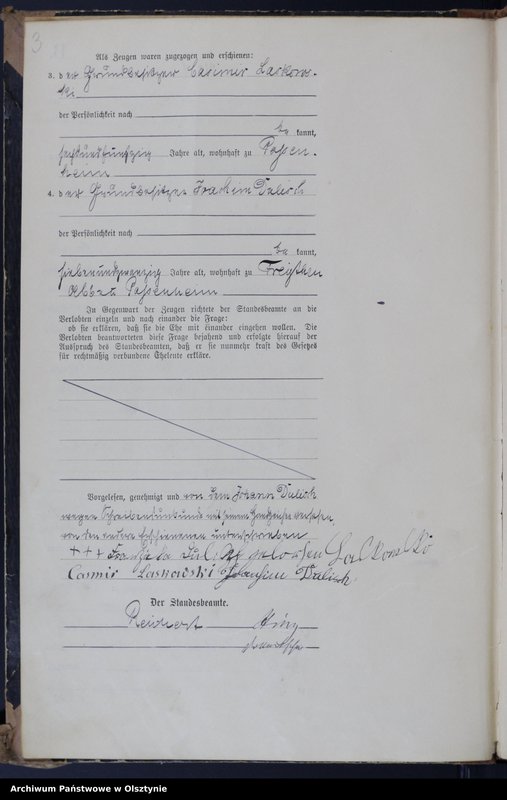 3
Als Zeugen waren zugezogen und erschienen:
3. der Grundbesitzer Casimir Laskows-
ki
der Persönlichkeit nach
be kannt,
sechsundfünfzig Jahre alt, wohnhaft zu Passen-
heim
4. der Grundbesitzer Joachim Dulisch
der Persönlichkeit nach
be kannt,
siebenundzwanzig Jahre alt, wohnhaft zu Freythen
Abbau Passenheim
In Gegenwart der Zeugen richtete der Standesbeamte an die
Verlobten einzeln und nach einander die Frage:
ob sie erklären, daß sie die Ehe mit einander eingehen wollen. Die
Verlobten beantworteten diese Frage bejahend und erfolgte hierauf der
Ausspruch des Standesbeamten, daß er sie nunmehr kraft des Gesetzes
für rechtmäßig verbundene Eheleute erkläre.
Vorgelesen, genehmigt und von dem Johann Dulisch
wegen Schreibensunkunde mit seinem Handzeichen versehen
von den andern Erschienenen unterschrieben
+++ Dulisch geborsen Laskowski
Casmir Laskowski Joachim Dulisch
Der Standesbeamte.
Archiwum Państwowe w Olsztynie